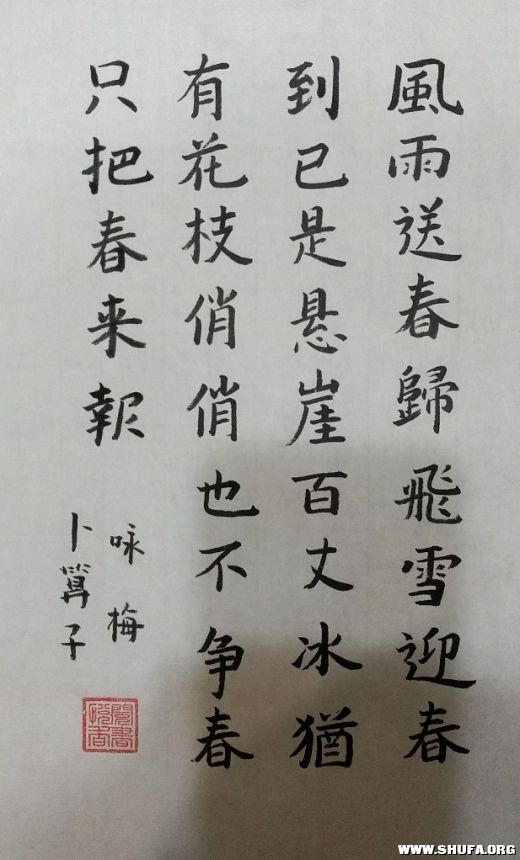 風雨送春歸飛雪迎春
到已是悬崖百丈冰猶
有花枝俏俏也不争春
只把春来報
咏梅
卜算子
WWW.SHUFA.ORG